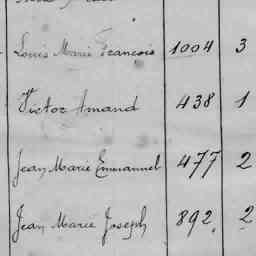 Louis Marie Francois 1004 3
Victor Amand 438 1
Jean Marie Emmanuel 477 2
Jean Marie Joseph 892. 2